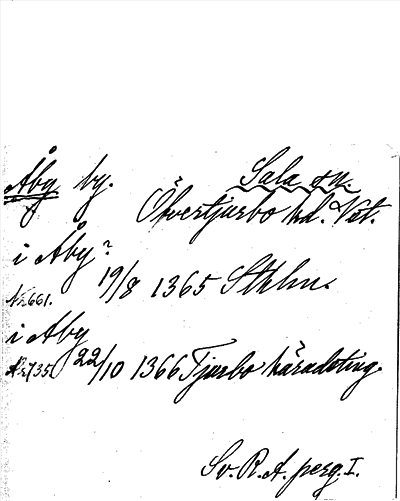 Åby by. Sala sn.
Övertjurbo hd. Vst.
i Åby?
19/8 1365 Sthlm.
Nr 661.
i Aby
Nr 735. 22/10 1366 Tjurbo häradsting.
Sv. R. A. perg. I.